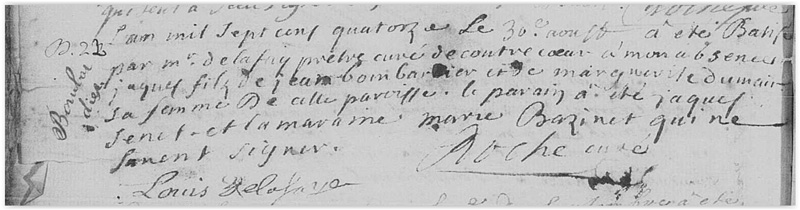 B. 22
L'an mil Sept cens quatorze Le 30e aoust a été Batisé
par mr. delafaÿ pretre curé de contrecœur a mon absence
jaques fils de jean bombardier et de marguerite dumain
Sa femme De cette paroisse. le parain a été jaques
Senet et la maraine marie Bazinet qui ne
savent signer.
Roche curé
Louis Delafaye